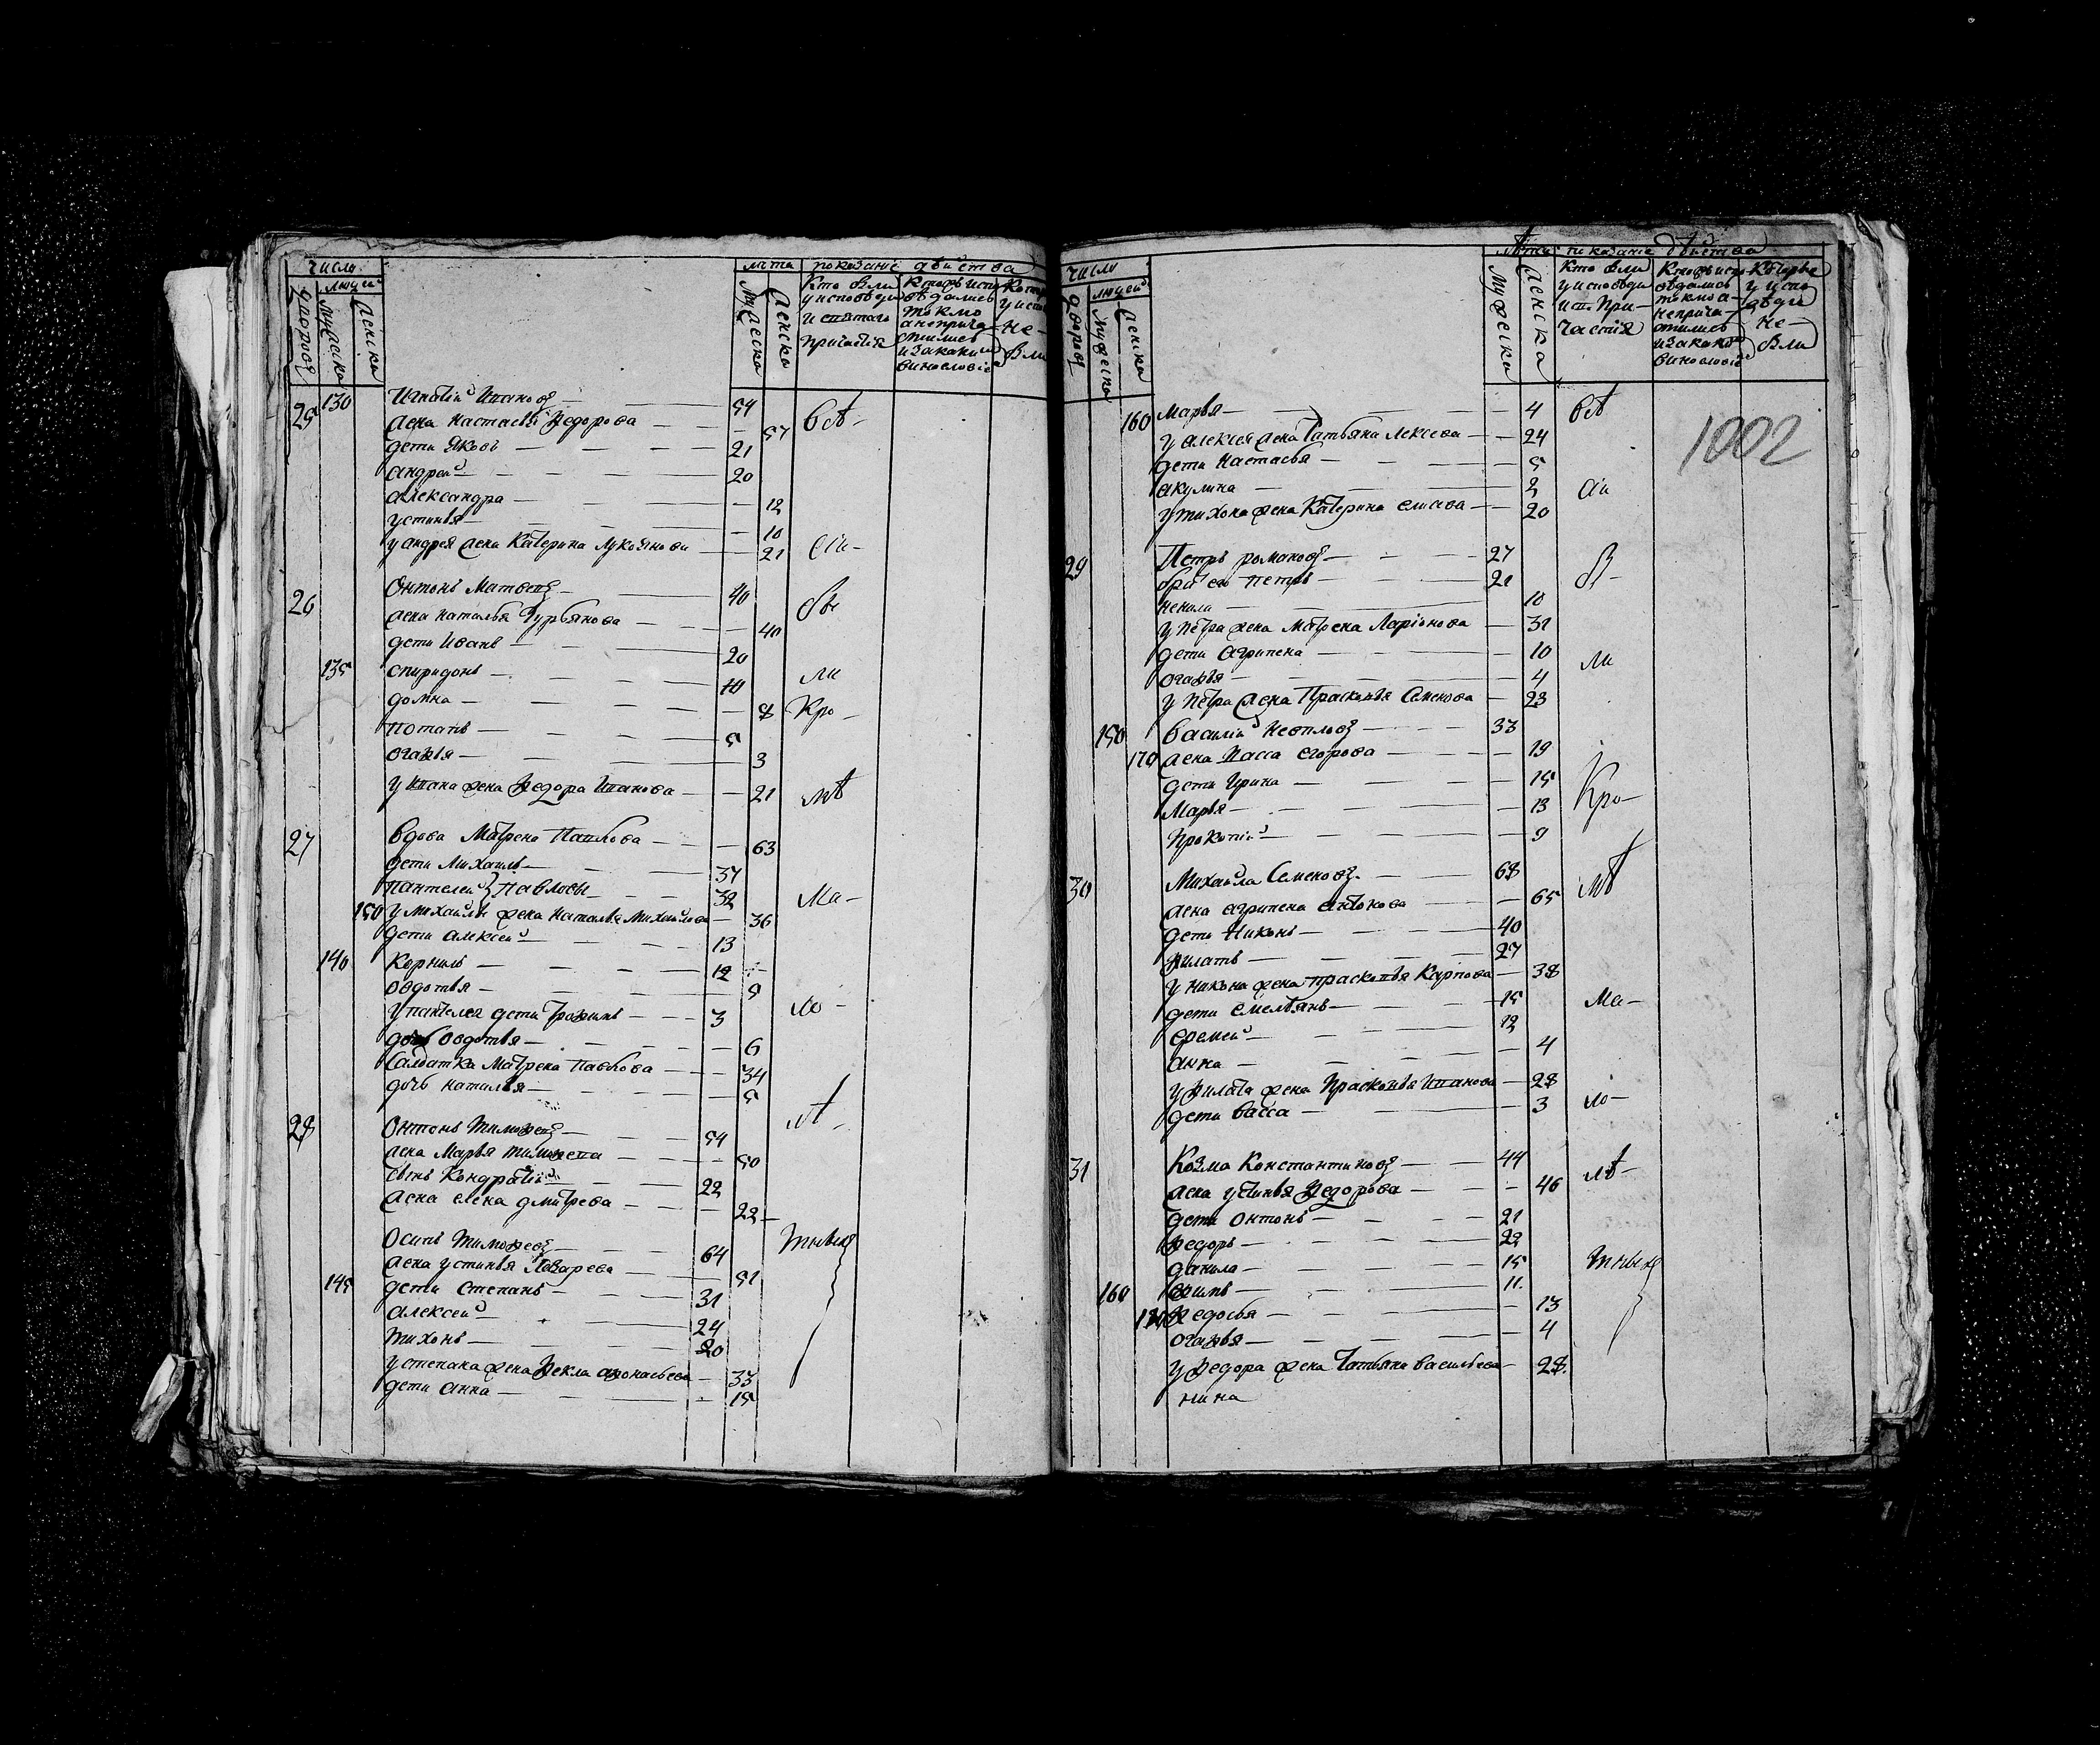 число
людей
дворовъ
мужеска
женска
лета показание действа
мужеска
женска
Кто были
у исповеди
и святаго
причастия
Которые испо
ведались
токмо
а неприча
стились
и за каким
винословие
Котор
у испо
не
были
25 130 Игнатий Иванов — 54
жена Настасья Федорова — 57 все
дети Яковъ — 21
андрей — 20
александра — 12
устинья — 10
у андрея жена Катерина Лукоянова — 21 сии
26 Онтонъ Матвеев — 40 бы
жена Наталья Гурьянова — 40
дети Иванъ — 20
135 спиридонъ — 10 ли
домна — 8 Кро
потапъ — 5
огафья — 3
у Ивана жена Федора Иванова — 21 ме
27 вдова Матрена Павлова — 63
дети Михаилъ — 37
пантелей Павловы — 32 Ма
150 у михаила жена наталья Михайлова — 36
дети алексей — 13
140 Корнилъ — 12
овдотья — 9
у пантелея дети Трофимъ — 3 ло
дочь овдотья — 6
Салдатка Матрена Павлова — 34
дочь наталья — 5
28 Онтонъ Тимофеев — 54 ле
жена Марья тимофеева — 50
сынъ Кондратий — 22
жена елена дмитрева — 22
Осипъ Тимофеев — 64 тныя
жена устинья Лазарева — 51
145 дети степанъ — 31
алексей — 24
тихонъ — 20
у степана жена Фекла афонасьева — 33
дети анна — 15
число
людей
дворовъ
мужеска
женска
лета показание действа
мужеска
женска
Кто были
у исповеди
и св. При
частия
Которые испо
ведались
токмо а
неприча
стились
и за каким
винословие
Которые
у испо
веди
не
были
1002
160 марья — 4 все
у алексея жена Татьяна Алексеева — 24
дети настасья — 5
акулина — 2 сии
у тихона жена Катерина — 20
29 Петръ романов — 27
братъ его петръ — 21 б
ненила — 10
у петра жена матрена Ларионова — 31
дети агрипена — 10 ли
огафья — 4
у петра жена Прасковья Семенова — 23
150 василий — 33
170 жена егорова — 19
дети Ирина — 15 Кро
марья — 13
прокопий — 9
30 Михайла Семенов — 68 ме
жена агрипена антонова — 65
дети Никонъ — 40
филатъ — 27
у никона жена прасковья Карпова — 38
дети емельянъ — 15 ма
еремей — 12
анна — 4
у филата жена Прасковья Иванова — 28
дети васса — 3 ло
31 Козма Константинов — 44
жена устинья Федорова — 46 ле
дети онтонъ — 21
федоръ — 22
данила — 15 тныя
160 ефимъ — 11
180 федосья — 13
огафья — 4
у федора жена Татьяна васильева — 28
нина